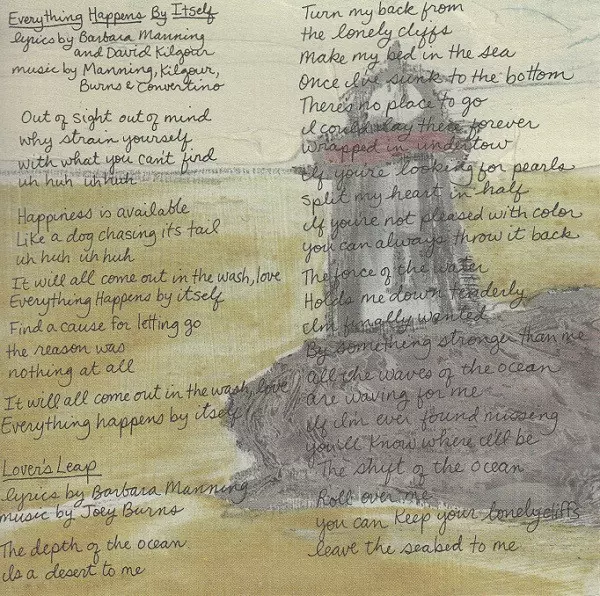 Everything Happens By Itself
lyrics by Barbara Manning
and David Kilgour
music by Manning, Kilgour,
Burns & Convertino
Out of sight out of mind
why strain yourself
with what you can't find
uh huh uh huh
Happiness is available
Like a dog chasing its tail
uh huh uh huh
It will all come out in the wash, love
Everything Happens by itself
Find a cause for letting go
the reason was
nothing at all
It will all come out in the wash, love
Everything happens by itself
Lover's Leap
lyrics by Barbara Manning
music by Joey Burns
The depth of the ocean
is a desert to me
Turn my back from
the lonely cliffs
Make my bed in the sea
Once I've sunk to the bottom
There's no place to go
I could stay there forever
wrapped in undertow
If you're looking for pearls
split my heart in half
If you're not pleased with color
you can always throw it back
The force of the water
Holds me down tenderly
I'm finally wanted
By something stronger than me
all the waves of the ocean
are waving for me
If I'm ever found missing
you'll know where I'll be
The shift of the ocean
Roll over me
you can keep your lonely cliffs
leave the seabed to me